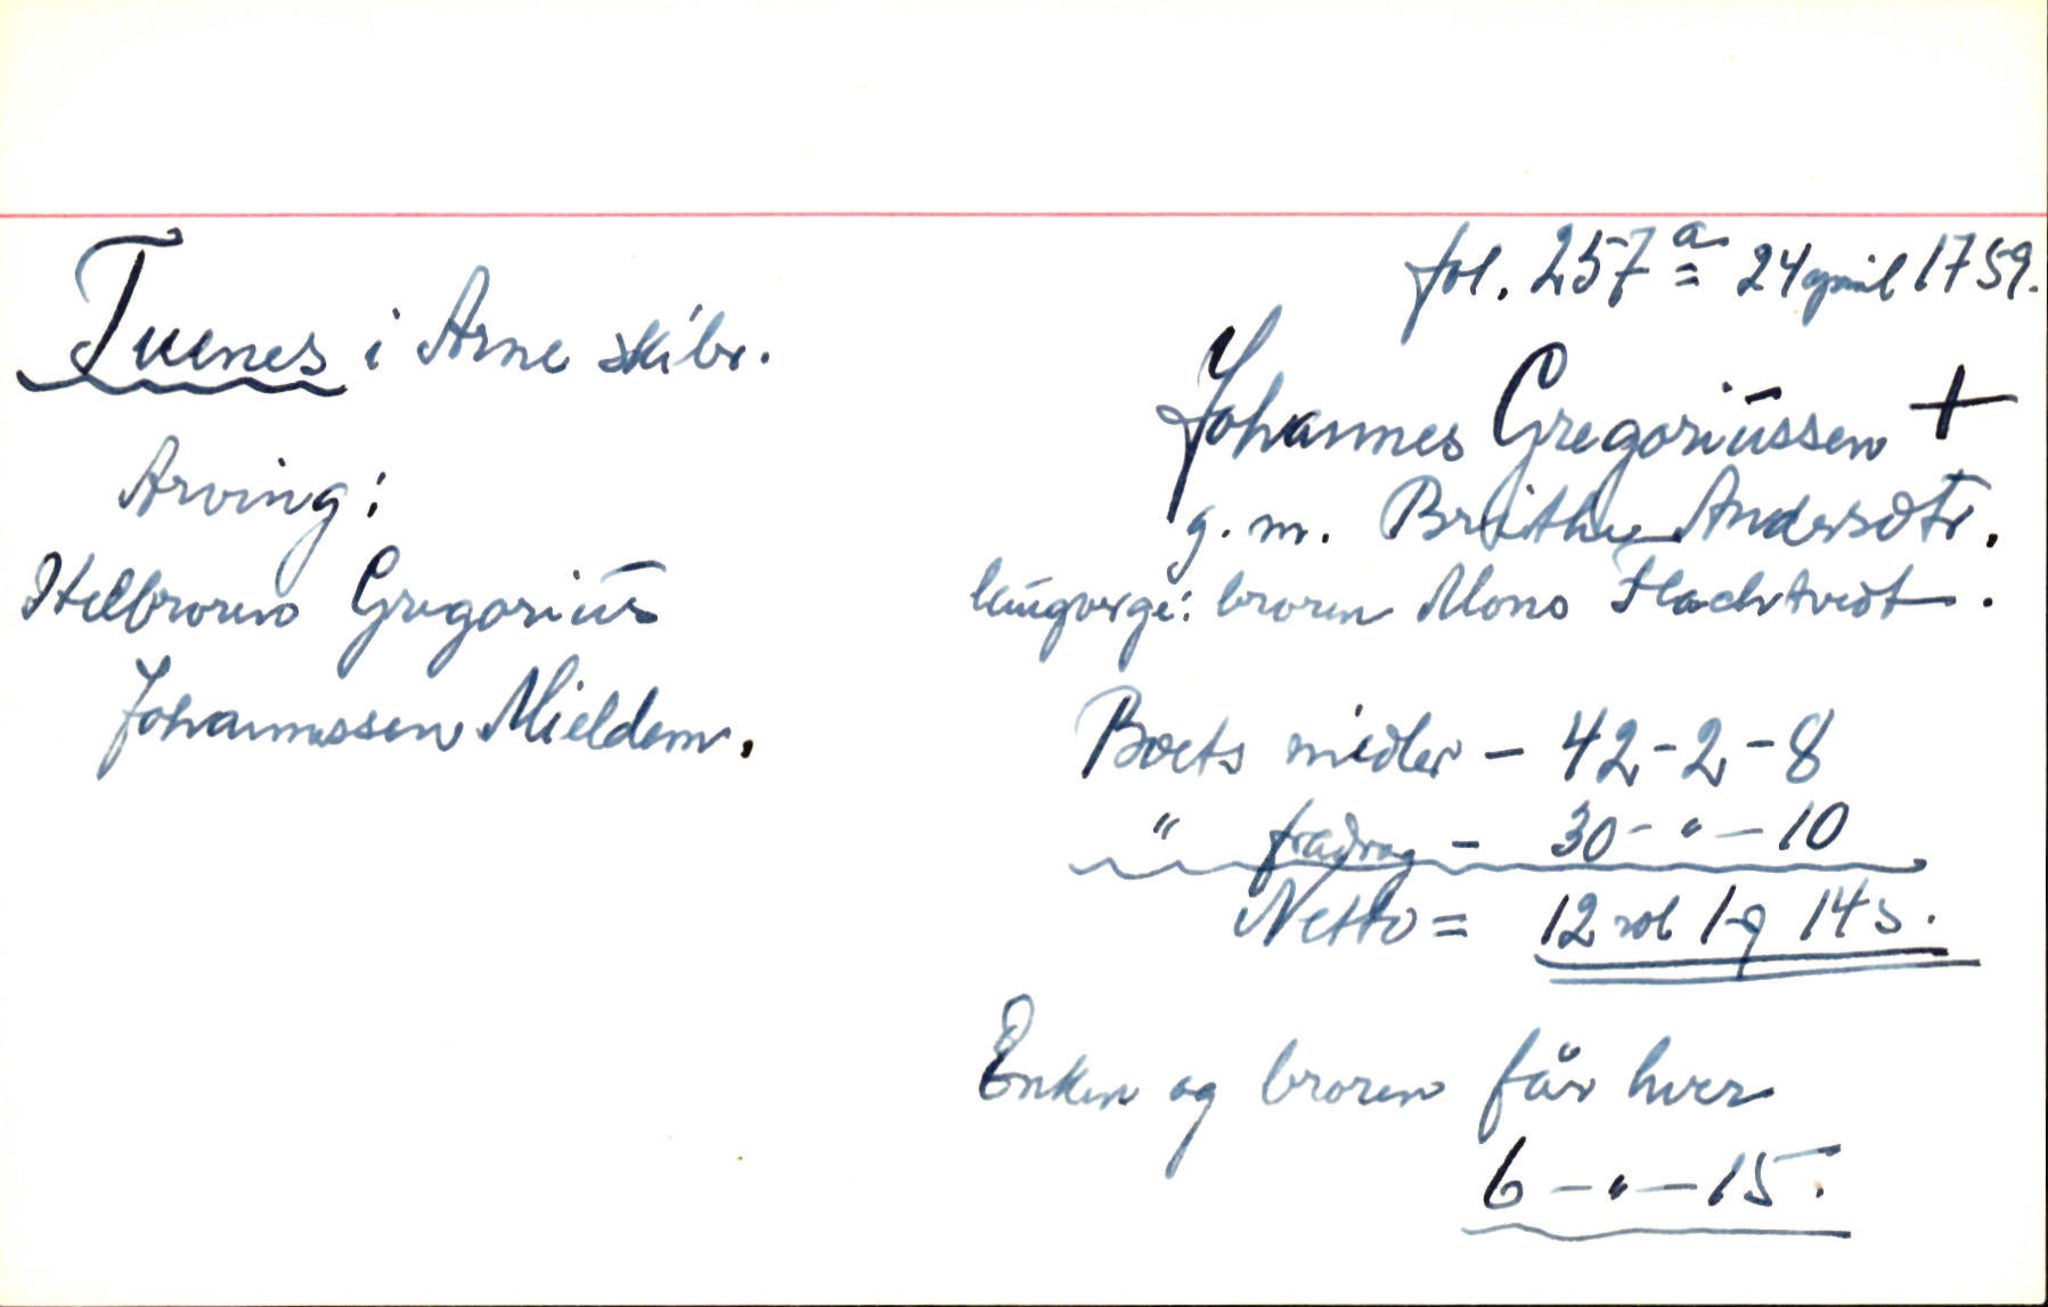 fol. 257 a = 24 april 1759.
Tuenes i Arne skibr.
Johannes Gregoriussen +
Arving:
g. m. Brithe Andersdtr.
Helbroren Gregorius
laugverge: broren Mons Flachtvedt.
Johannessen Mieldem.
Boets midler – 42 - 2 - 8
" fradrag – 30 - " - 10
Netto = 12 rdl 1 q 14 s.
Enken og broren får hver
6 - " - 15.